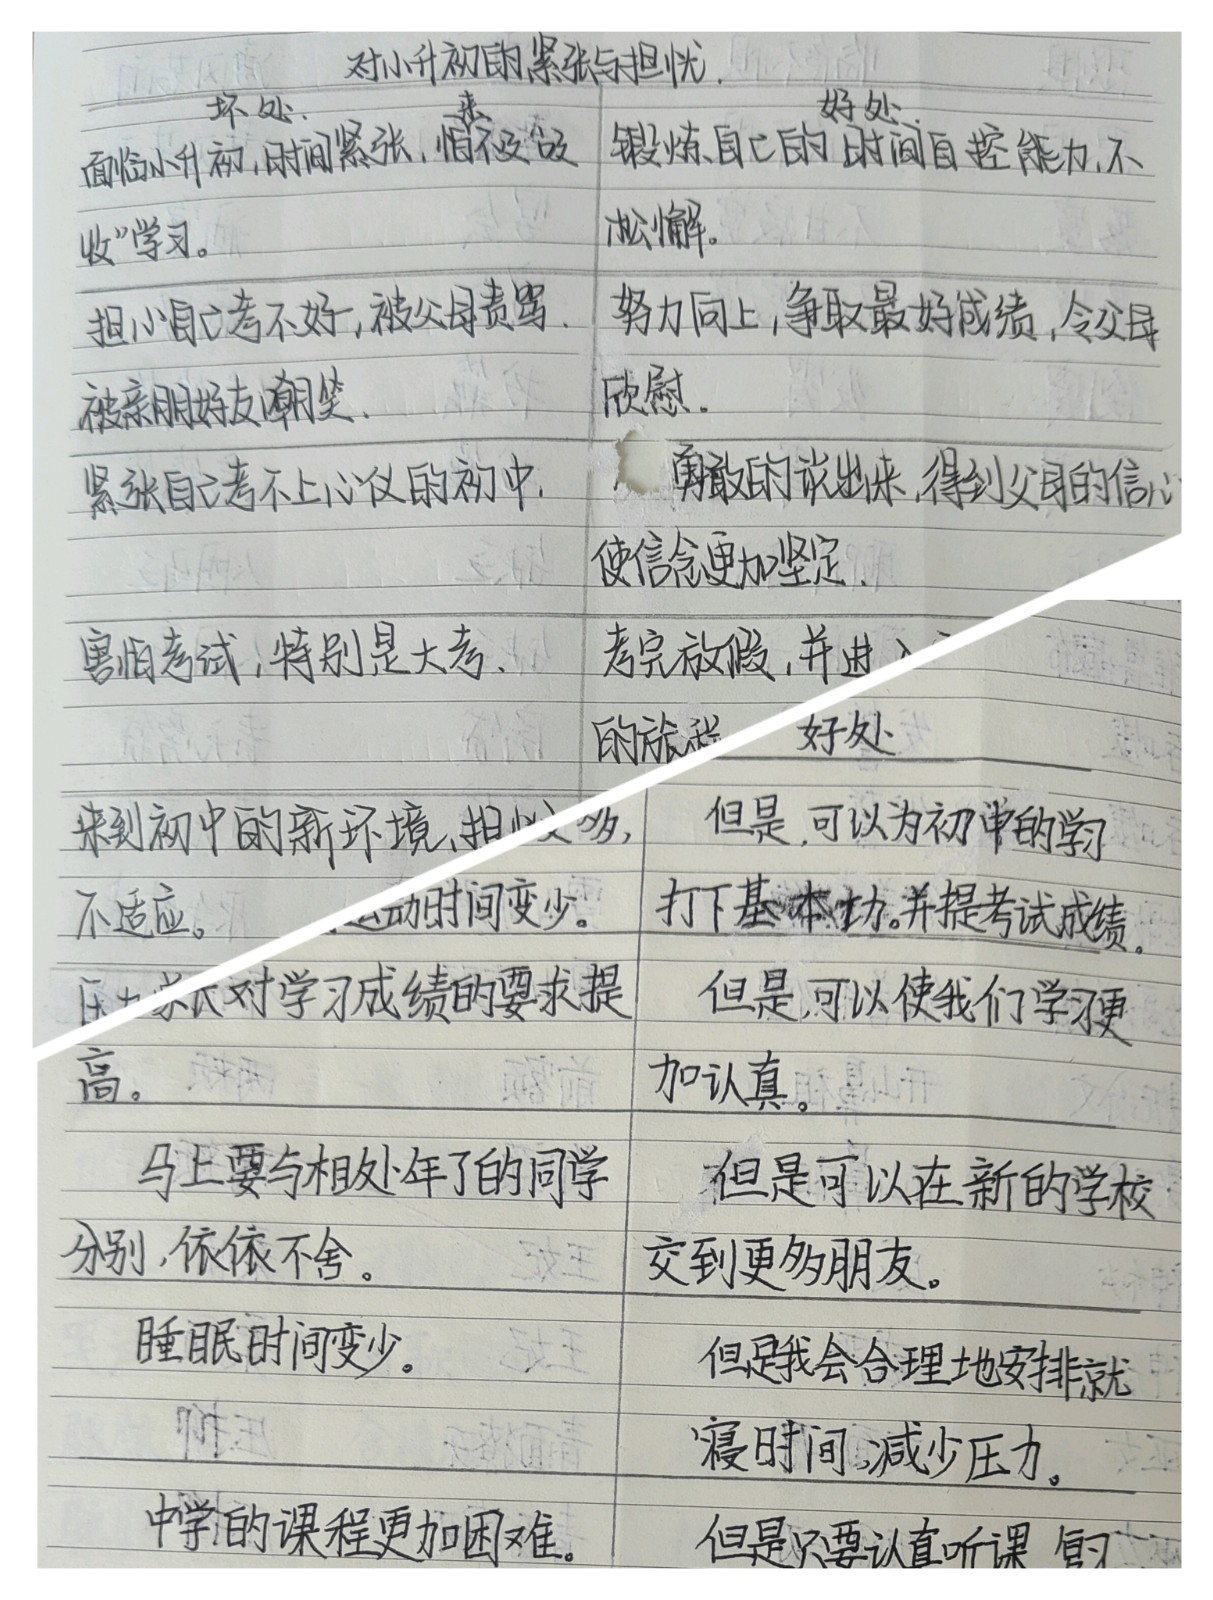 对小升初的紧张与担忧.
坏处.
好处.
面临小升初,时间紧张,怕来不及“改
收”学习。
锻炼自己的时间自控能力,不
松懈.
担心自己考不好,被父母责骂.
被亲朋好友嘲笑.
努力向上,争取最好成绩,令父母
欣慰.
紧张自己考不上心仪的初中.
勇敢的说出来,得到父母的信心
使信念更加坚定.
害怕考试,特别是大考.
考完放假,并进入
的旅程
来到初中的新环境,担心
不适应。
好处
多,
动时间变少。
但是,可以为初中的学习
打下基本功。并提考试成绩。
家长对学习成绩的要求提
高。
但是,可以使我们学习更
加认真。
马上要与相处年了的同学
分别,依依不舍。
但是可以在新的学校
交到更多朋友。
睡眠时间变少。
但是我会合理地安排就
寝时间,减少压力。
中学的课程更加困难。
但是只要认真听课